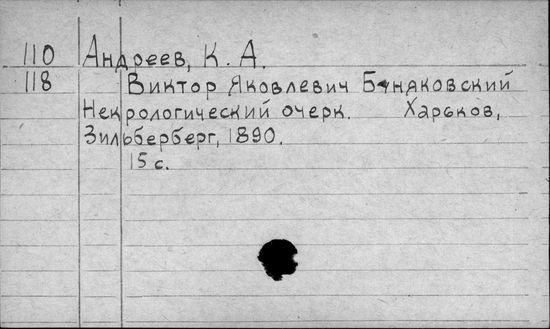 110 Андреев, К. А.
118 Виктор Яковлевич Буняковский
Некрологический очерк. Харьков,
Зильберберг, 1890.
15 с.